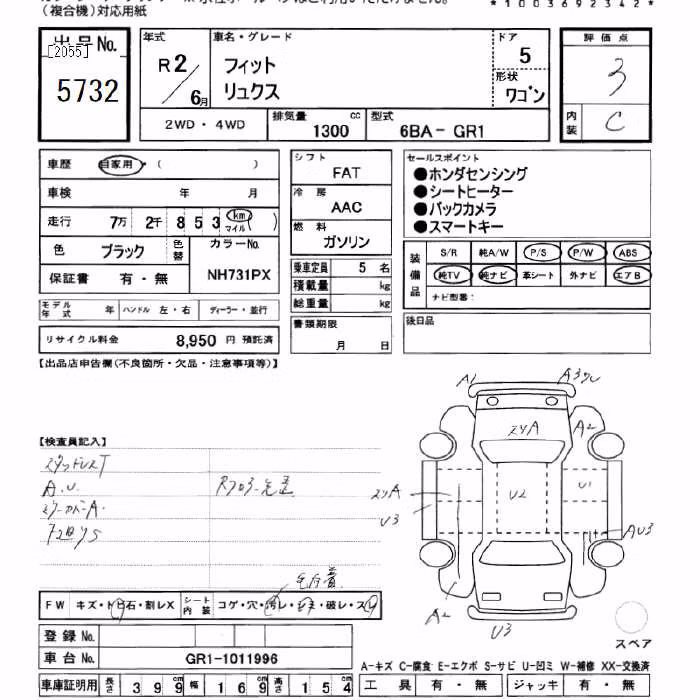 (複合機)対応用紙
*1003692342*
出品No.
[2055]
5732
年式
R2/6月
車名・グレード
フィット
リュクス
ドア
5
形状
ワゴン
2WD・4WD
排気量
1300 cc
型式
6BA-GR1
評価点
3
内装
C
車歴 自家用・( )
車検 年 月
走行 7万 2千 853 km マイル ( )
色 ブラック 色替
カラーNo.
NH731PX
保証書 有・無
モデル年式 年 ハンドル 左・右 ディーラー・並行
リサイクル料金 8,950 円 預託済
シフト
FAT
冷房
AAC
燃料
ガソリン
乗車定員 5 名
積載量 kg
総重量 kg
書類期限
月 日
セールスポイント
●ホンダセンシング
●シートヒーター
●バックカメラ
●スマートキー
装備品
S/R 純A/W P/S P/W ABS
純TV 純ナビ 革シート 外ナビ エアB
ナビ型番:
後日品
【出品店申告欄(不良箇所・欠品・注意事項等)】
【検査員記入】
A.U.
A1
A3
A2
スリA
U2
U1
スリA
U3
AU3
A2
U3
FW キズ・トビ石・割レX
シート内装 コゲ・穴・汚レ・シミ・破レ・スレ
登録No.
車台No. GR1-1011996
車庫証明用 長さ 399cm 幅 169cm 高さ 154cm
スペア
A-キズ C-腐食 E-エクボ S-サビ U-凹ミ W-補修 XX-交換済
工具 有・無 ジャッキ 有・無